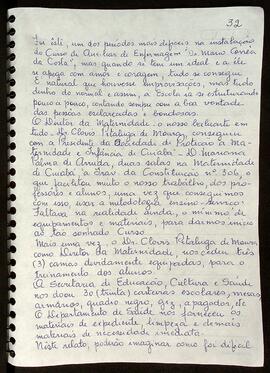 32
Foi este, um dos periodos mais dificeis na instalação
do Curso de Auxiliar de Enfermagem "Dr. Mario Corrêa
da Costa", mas quando se tem um ideal e a êle
se apega com amor e coragem, tudo se consegue
É natural que houvesse improvisações, mas tudo
dentro do normal e assim, a Escola ia se estruturando
pouco a pouco, contando sempre com a boa vontade
das pessoas esclarecidas e bondosas.
O Diretor da Maternidade e nosso
tudo. Dr. Clovis Pitaluga de Moura, conseguiu
com a Presidente da Sociedade de Proteção à Ma-
ternidade e Infância de Cuiabá - D.
Palma de Arruda, duas salas na Maternidade
de Cuiabá, à Trav. da Constituição nº 306, o
que facilitou muito o nosso trabalho dos pro-
fessores e alunos, uma vez que conseguimos
com isso, usar a metodologia ensino-serviço.
Faltava na realidade ainda, o minimo de
equipamentos e materiais, para darmos inicio
ao tão sonhado Curso
Mais uma vez, o Dr. Clovis Pitaluga de Moura
como Diretor da Maternidade, nos cedeu três
(3) camas devidamente equipadas, para o
treinamento dos alunos.
A Secretaria de Educação, Cultura e Saude
nos doou 30 (trinta) carteiras escolares, mesas
armários, quadro negro, giz, apagador, etc
O Departamento de Saúde nos forneceu os
materiais de expediente, limpeza e demais
materiais de necessidade imediata.
Neste relato, poderão imaginar como foi dificil